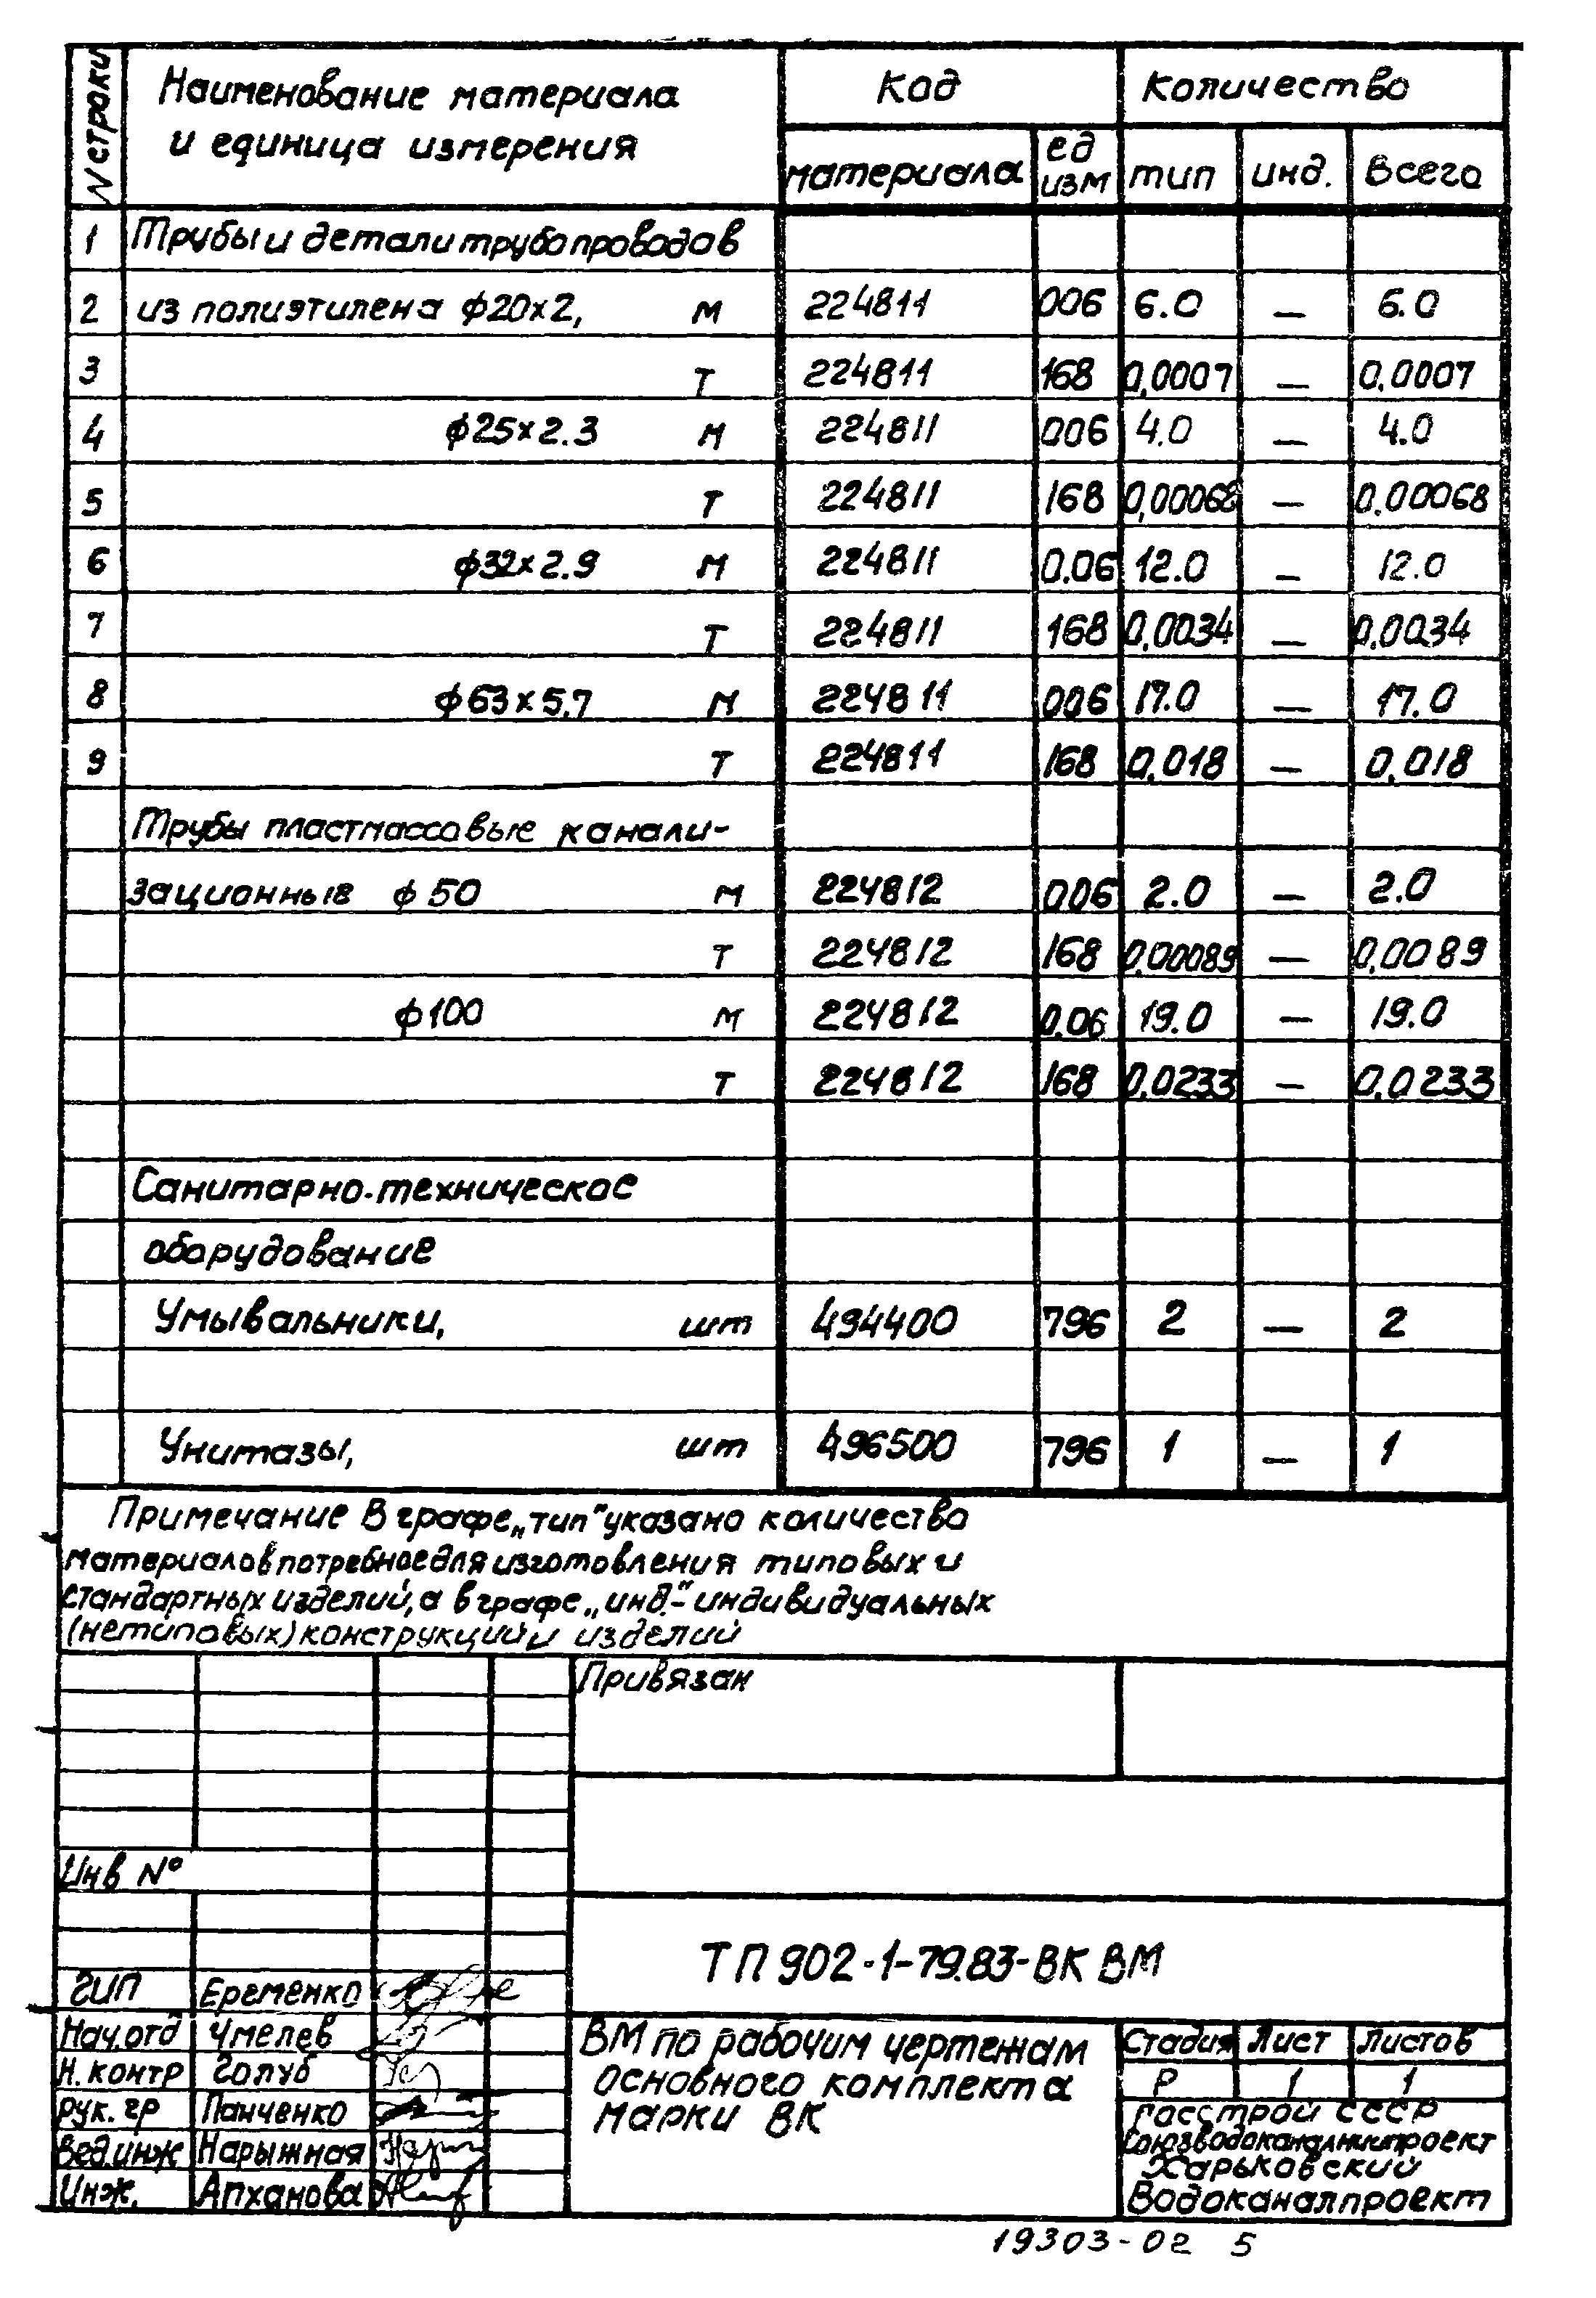 N строки Наименование материала Код Количество
и единица измерения материала ед изм тип инд. Всего
1 Трубы и детали трубопроводов
2 из полиэтилена ф20х2, м 224811 006 6.0 — 6.0
3 т 224811 168 0,0007 — 0.0007
4 ф25х2.3 м 224811 006 4.0 — 4.0
5 т 224811 168 0,00068 — 0.00068
6 ф32х2.9 м 224811 0.06 12.0 — 12.0
7 т 224811 168 0,0034 — 0.0034
8 ф63х5.7 м 224811 006 17.0 — 17.0
9 т 224811 168 0,018 — 0,018
Трубы пластмассовые канали-
зационные ф50 м 224812 006 2.0 — 2.0
т 224812 168 0,00089 — 0,0089
ф100 м 224812 0.06 19.0 — 19.0
т 224812 168 0,0233 — 0,0233
Санитарно-техническое
оборудование
Умывальники, шт 494400 796 2 — 2
Унитазы, шт 496500 796 1 — 1
Примечание В графе „тип" указано количество
материалов потребное для изготовления типовых и
стандартных изделий, а в графе „инд."- индивидуальных
(нетиповых) конструкций и изделий
Привязан
Инв №
ТП 902-1-79.83-ВК ВМ
ГИП Еременко
Нач.отд Чмелев
Н. контр Голуб
рук. гр Панченко
Вед.инж Нарыжная
Инж. Апханова
ВМ по рабочим чертежам
основного комплекта
марки ВК
Стадия Лист Листов
Р 1 1
Госстрой СССР
Союзводоканалниипроект
Харьковский
Водоканалпроект
19303-02 5